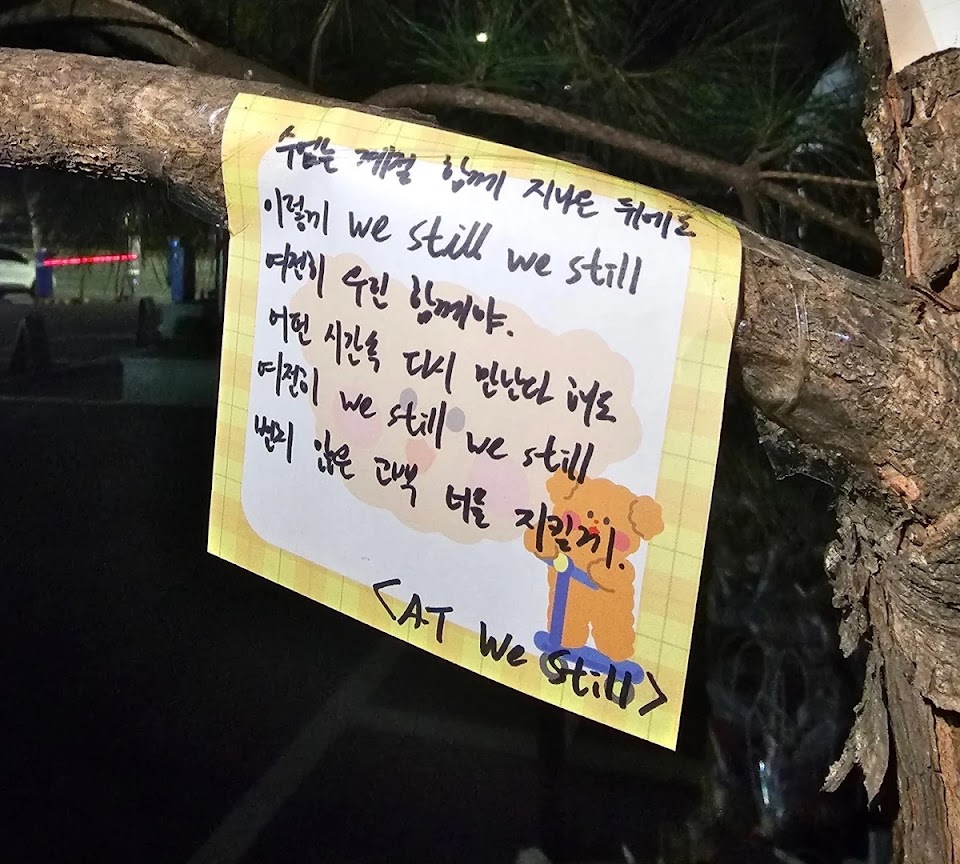 수많은 계절 함께 지나온 뒤에도
이렇게 we still we still
여전히 우린 함께야.
어떤 시간속 다시 만난다 해도
여전히 we still we still
변치 않은 고백 너를 지킬게.
<A.T We Still>